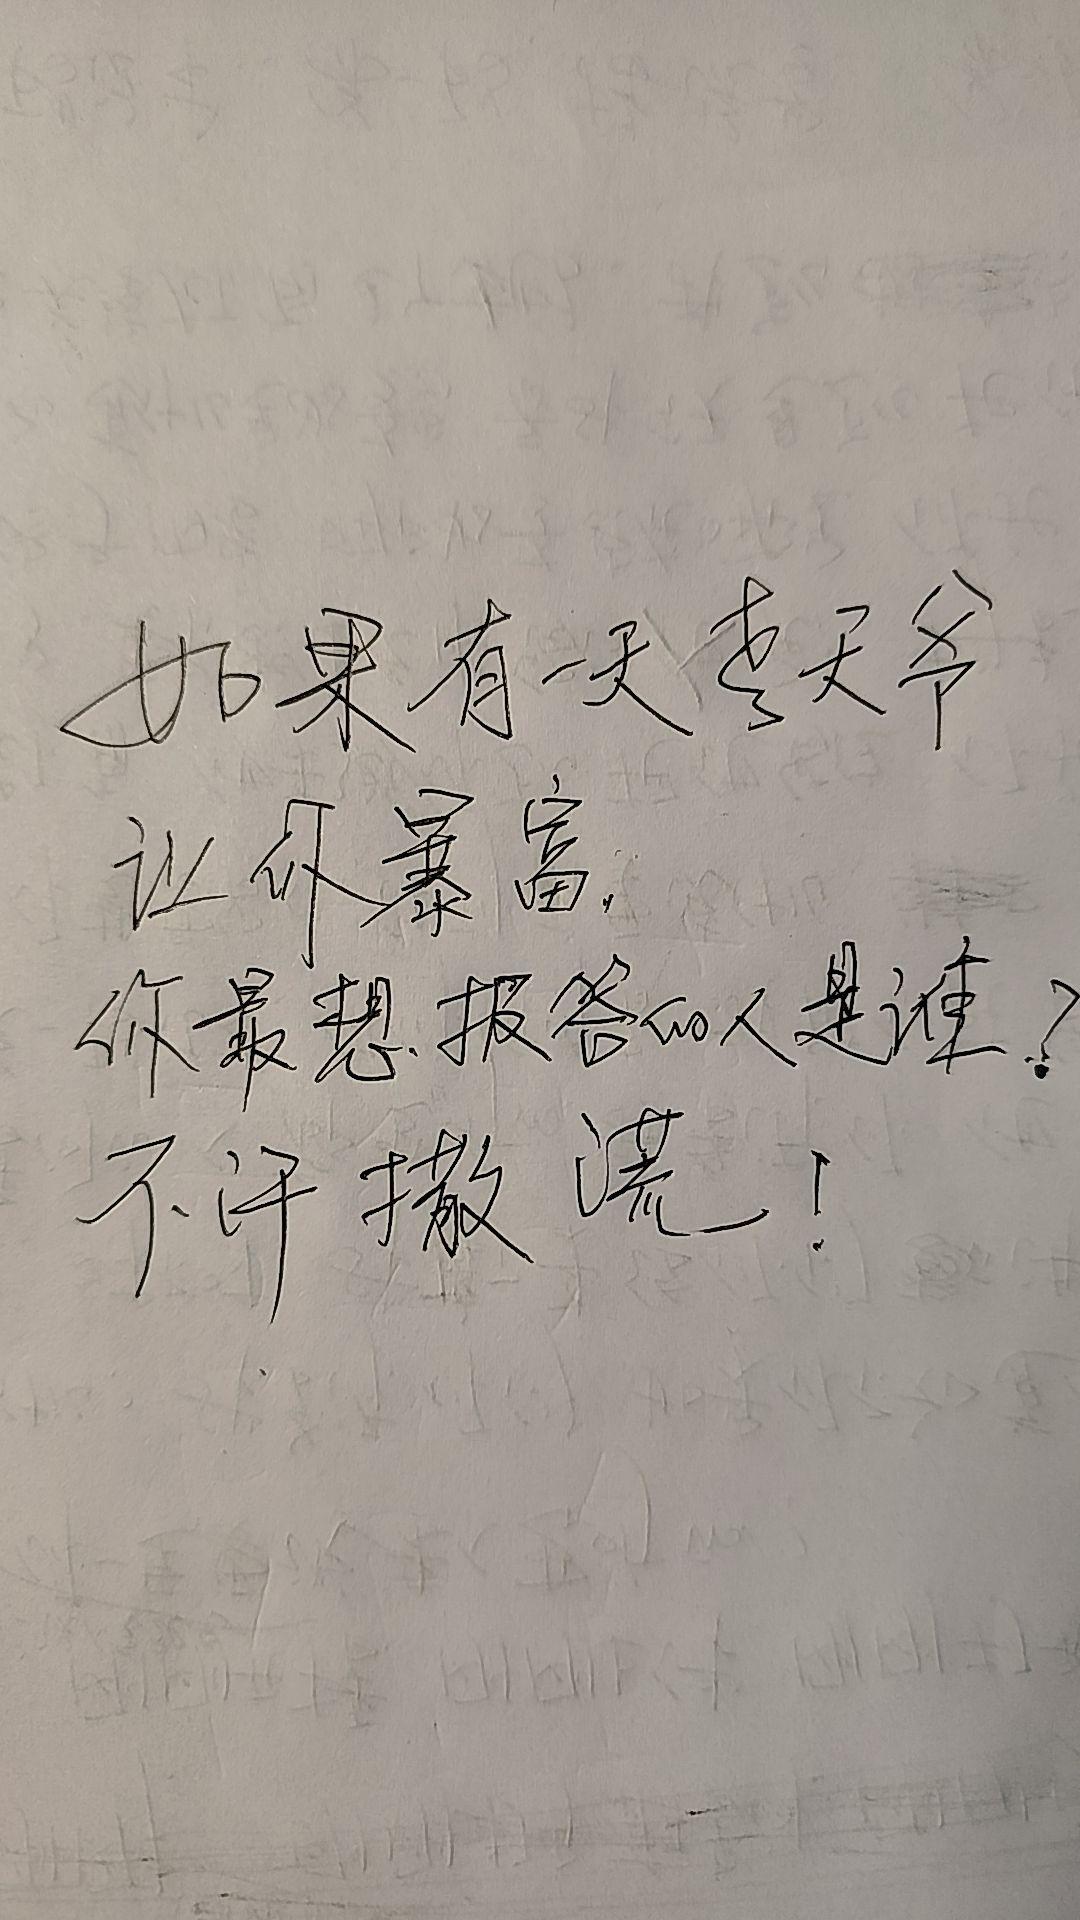 如果有一天老天爷
让你暴富,
你最想报答的人是谁?
不许撒谎!